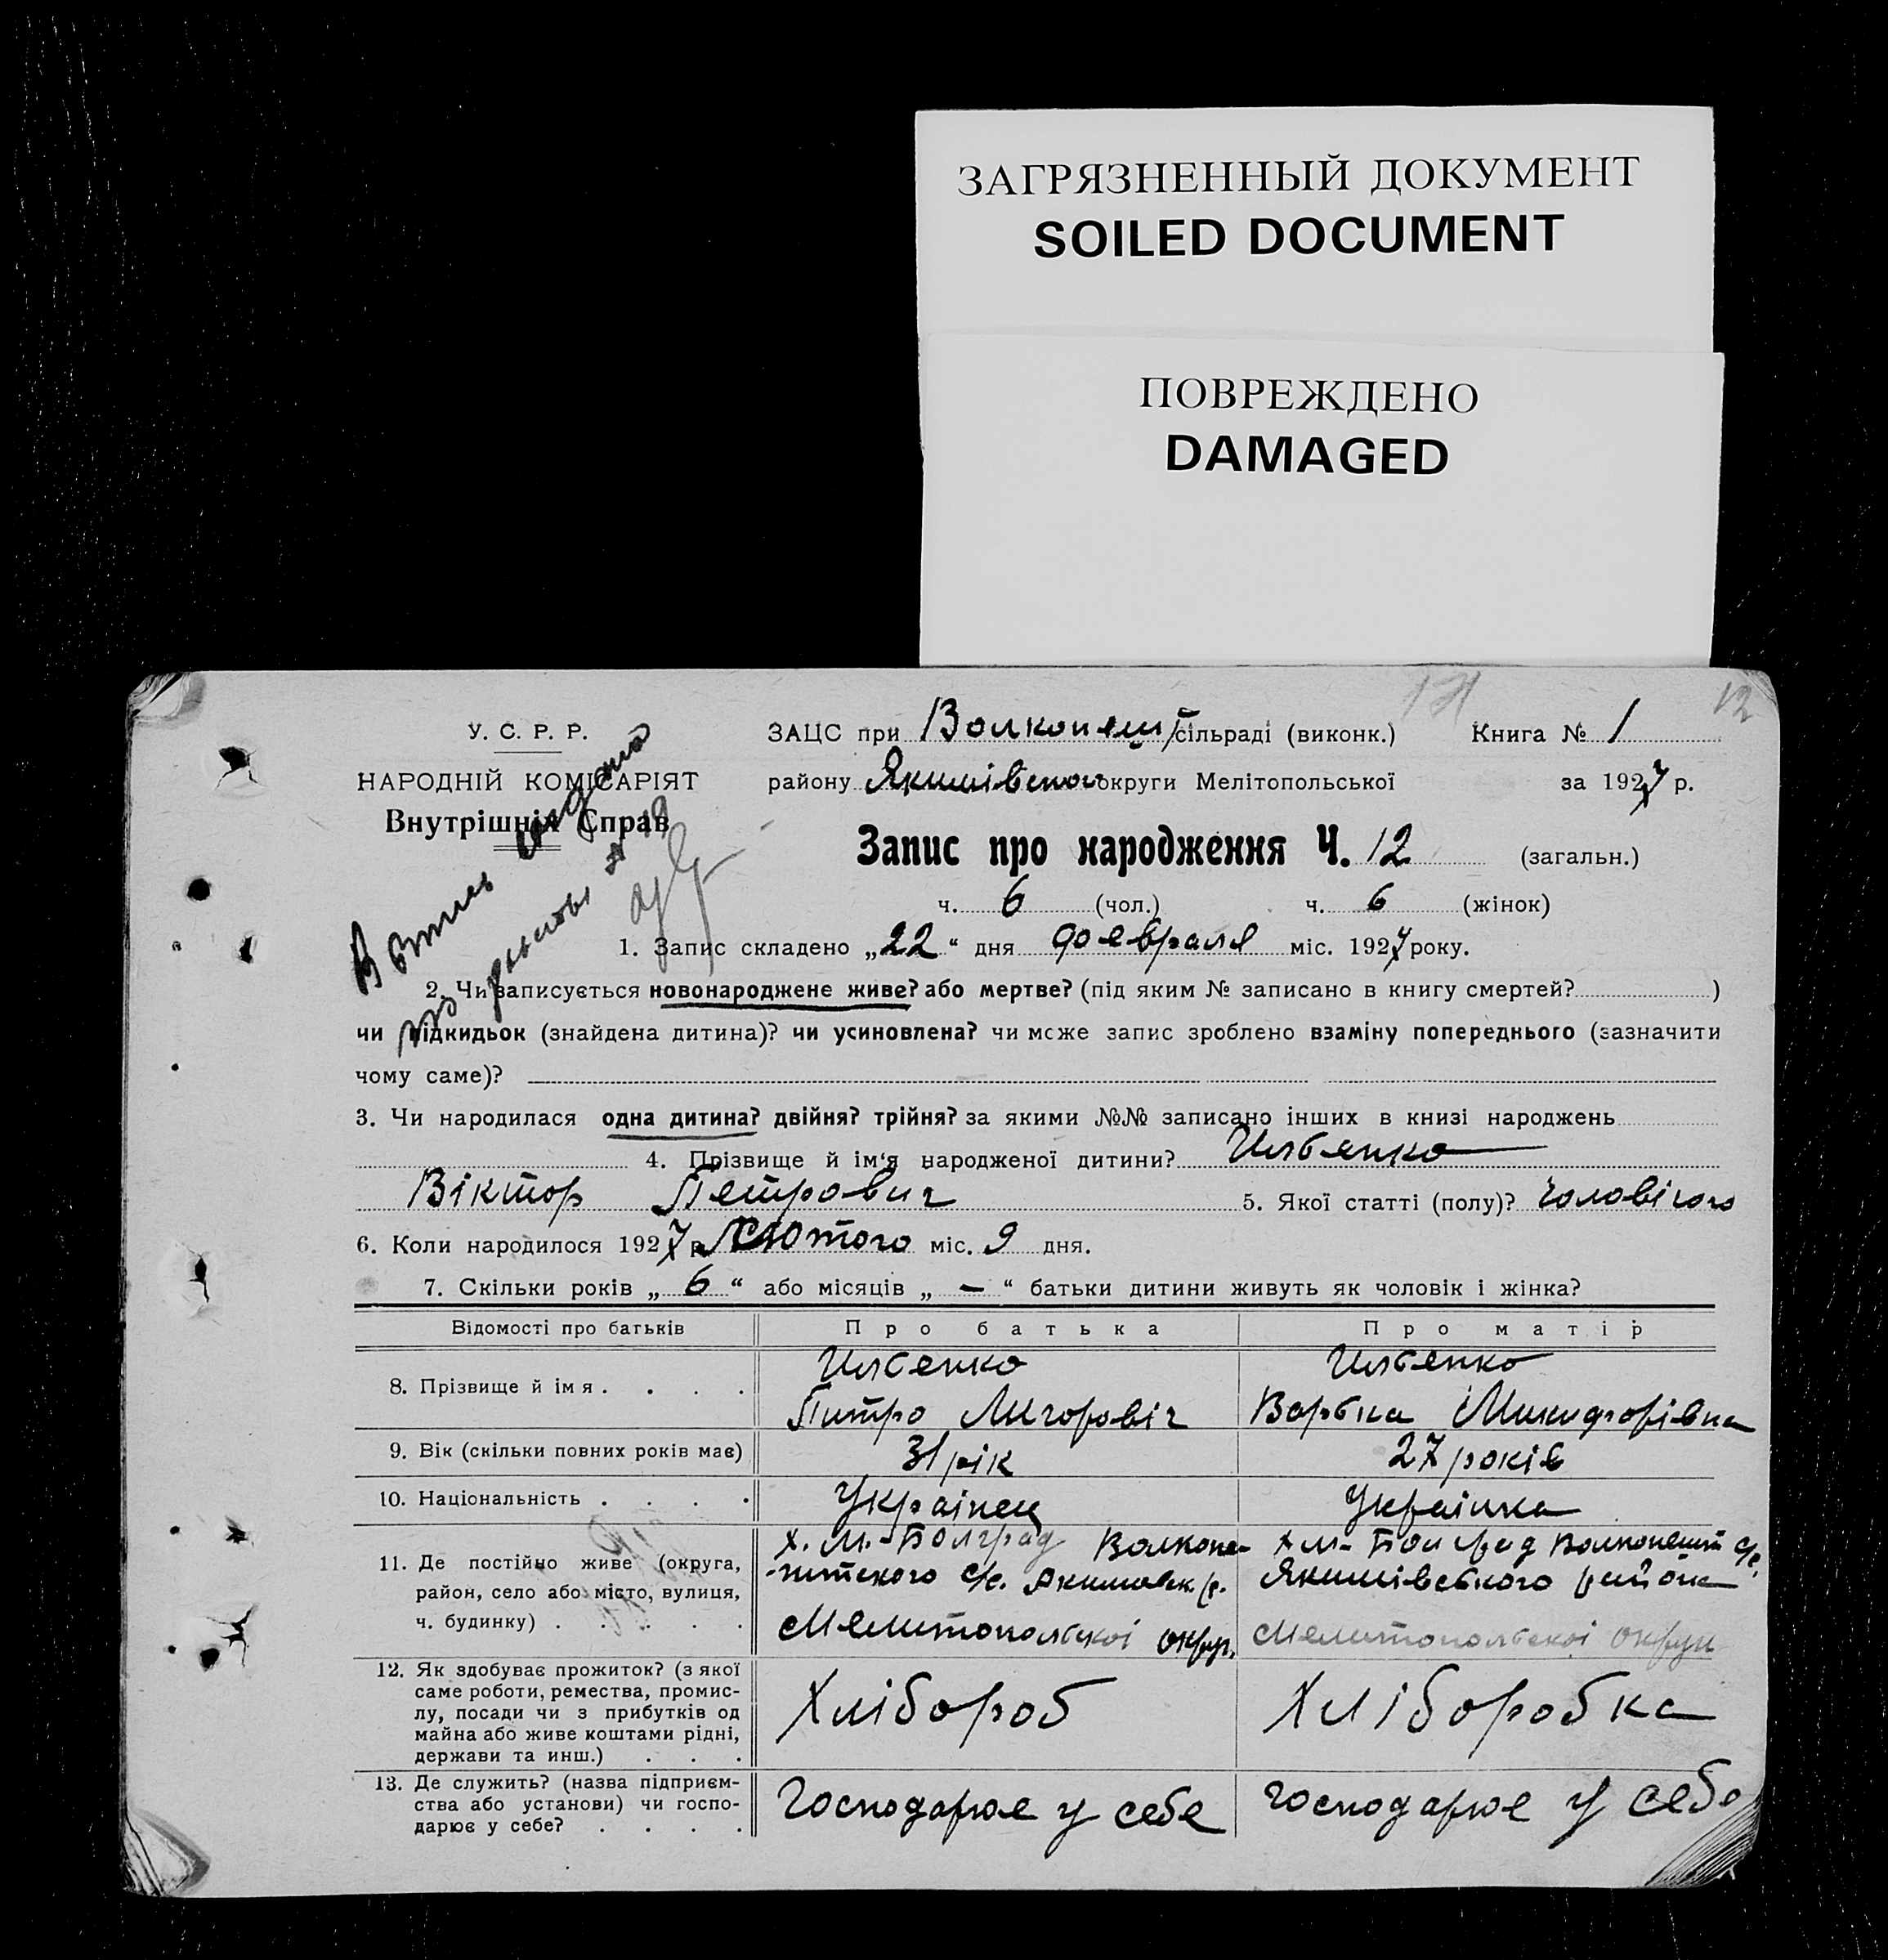 ЗАГРЯЗНЕННЫЙ ДОКУМЕНТ
SOILED DOCUMENT
ПОВРЕЖДЕНО
DAMAGED
171 12
У. С. Р. Р.
НАРОДНІЙ КОМІСАРІЯТ
Внутрішніх Справ
ЗАЦС при Волконешт сільраді (виконк.) Книга № 1
району Якимівської округи Мелітопольської за 1927 р.
Запис про народження Ч. 12 (загальн.)
ч. 6 (чол.) ч. 6 (жінок)
1. Запис складено „22“ дня февраля міс. 1927 року.
2. Чи записується новонароджене живе? або мертве? (під яким № записано в книгу смертей? )
чи підкидьок (знайдена дитина)? чи усиновлена? чи може запис зроблено взаміну попереднього (зазначити
чому саме)?
3. Чи народилася одна дитина? двійня? трійня? за якими №№ записано інших в книзі народжень
4. Прізвище й ім'я народженої дитини? Ильенко
Віктор Петрович 5. Якої статті (полу)? чоловічого
6. Коли народилося 1927 р. Лютого міс. 9 дня.
7. Скільки років „ 6 “ або місяців „ — “ батьки дитини живуть як чоловік і жінка?
Відомості про батьків Про батька Про матір
8. Прізвище й імя . . . . Ильенко Ильенко
Питро Варька Микифорівна
9. Вік (скільки повних років має) 31 рік 27 років
10. Національність . . . . Українец Українка
11. Де постійно живе (округа, район, село або місто, вулиця, ч. будинку) . . . . .
Х. М.-Болград Волконе-
-штского с/с. Якимовск р.
Мелитопольскої округ.
Х М-Болград Волконешт с/с.
Якимівського района
Мелитопольскої округи
12. Як здобуває прожиток? (з якої
саме роботи, ремества, промис-
лу, посади чи з прибутків од
майна або живе коштами рідні,
держави та инш.) . . .
Хлібороб Хліборобка
13. Де служить? (назва підприєм-
ства або установи) чи госпо-
дарює у себе? . . . .
Господарює у себе господарює у себе